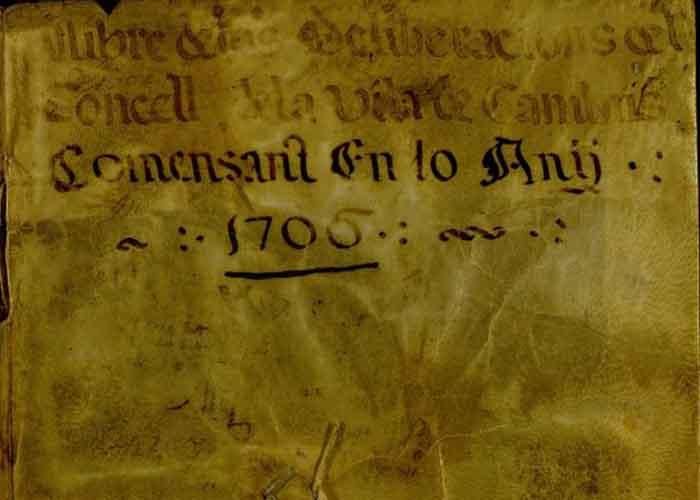 llibre de las Deliberacions del
Concell de la Vila de Cambrils
Comensant En lo Anij .:
~ :· 1706 ·: ~~ ·: